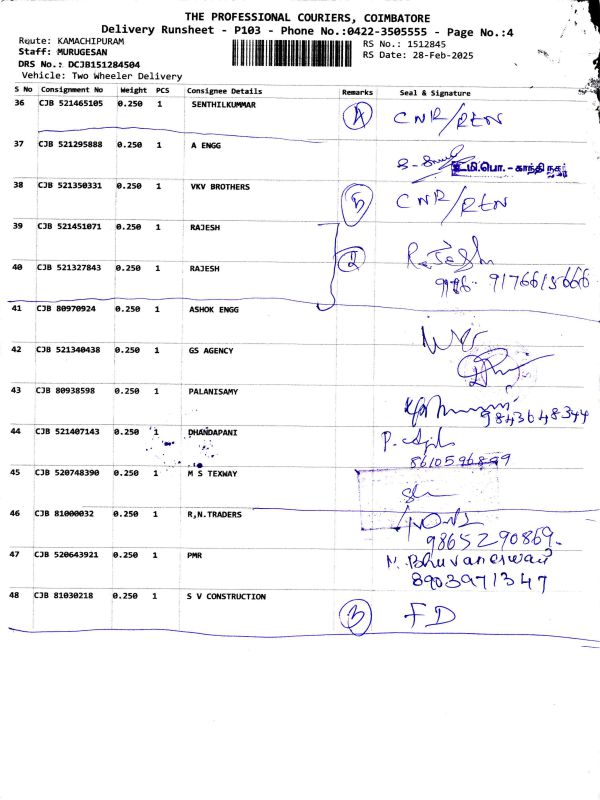 THE PROFESSIONAL COURIERS, COIMBATORE
Delivery Runsheet - P103 - Phone No.:0422-3505555 - Page No.:4
Route: KAMACHIPURAM
RS No.: 1512845
Staff: MURUGESAN
RS Date: 28-Feb-2025
DRS No.: DCJB151284504
Vehicle: Two Wheeler Delivery
S No Consignment No Weight PCS Consignee Details Remarks Seal & Signature
36 CJB 521465105 0.250 1 SENTHILKUMMAR A CNR/REN
37 CJB 521295888 0.250 1 A ENGG உ.மி.பொ.-காந்தி நகர்
38 CJB 521350331 0.250 1 VKV BROTHERS CNR/REN
39 CJB 521451071 0.250 1 RAJESH
40 CJB 521327843 0.250 1 RAJESH 9176615666
41 CJB 80970924 0.250 1 ASHOK ENGG
42 CJB 521340438 0.250 1 GS AGENCY
43 CJB 80938598 0.250 1 PALANISAMY 9843648344
44 CJB 521407143 0.250 1 DHANDAPANI
45 CJB 520748390 0.250 1 M S TEXWAY
46 CJB 81000032 0.250 1 R,N.TRADERS
9865290869
47 CJB 520643921 0.250 1 PMR N. Bhuvaneswari
8903971347
48 CJB 81030218 0.250 1 S V CONSTRUCTION B FD